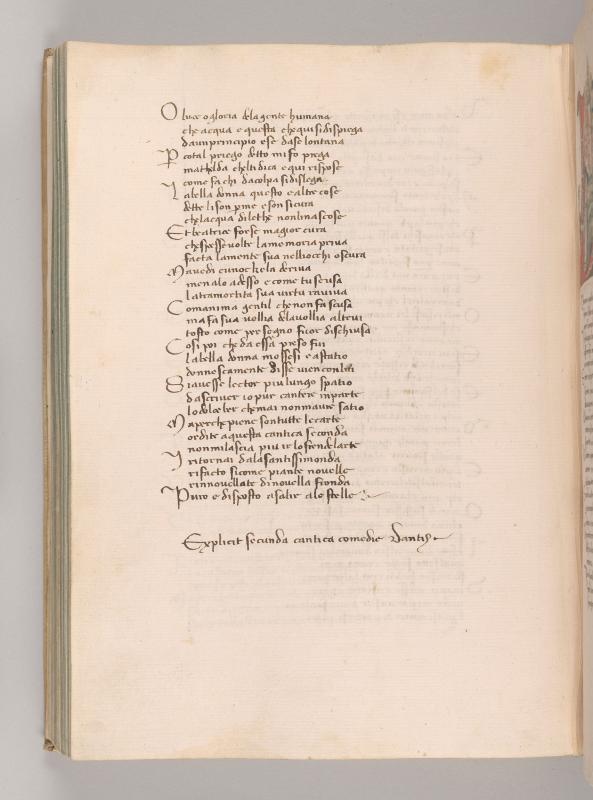 O luce o gloria dela gente humana
che acqua e questa che qui si dispiega
da un principio e se da se lontana
P cotal priego detto mi fo prega
mathelda chel ti dica e qui rispose
come fa chi da colpa si dislega
La bella donna questo e altre cose
dette li son p me e son sicura
che lacqua di lethe non li nascose
Et beatrice forse magior cura
che spesse volte la memoria priva
facta la mente sua nelli occhi oscura
Ma vedi eunoe la deriva
menalo adesso e come tu se usa
la tramortita sua virtu raviva
Com anima gentil che non fa scusa
ma fa sua vollia dela vollia altrui
tosto come per segno fuor dischiusa
Cosi poi che da essa preso fui
la bella donna mossesi e a statio
donnescamente disse vien con lui
Si avesse lector piu lungo spatio
da scriver io pur cantere in parte
lo dolce ber che mai non mavre satio
Ma perche piene son tutte le carte
ordite a questa cantica seconda
non mi lascia piu ir lo fren delarte
I ritornai dala santissimonda
rifacto si come piante novelle
rinnovellate di novella fronda
Puro e disposto a salir a le stelle
Explicit secunda cantica comedie Dantis